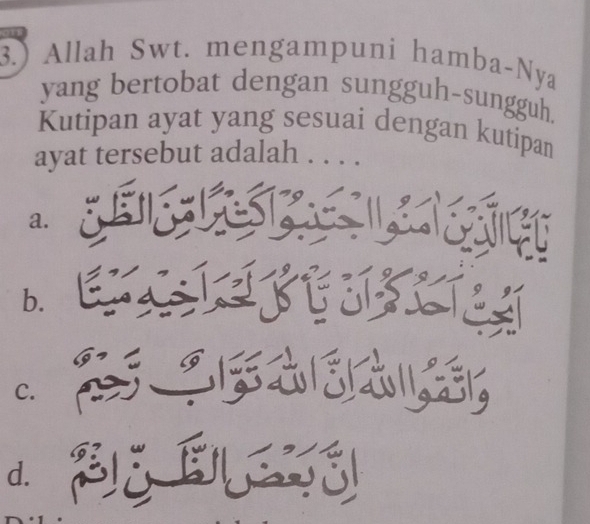 3. Allah Swt. mengampuni hamba-Nya
yang bertobat dengan sungguh-sungguh.
Kutipan ayat yang sesuai dengan kutipan
ayat tersebut adalah . . . .
a. يٰٓاَيُّهَا الَّذِيْنَ اٰمَنُوا اجْتَنِبُوْا كَثِيْرًا مِّنَ الظَّنِّ
b. اَيُحِبُّ اَحَدُكُمْ اَنْ يَّأْكُلَ لَحْمَ اَخِيْهِ مَيْتًا
c. وَاتَّقُوا اللّٰهَ اِنَّ اللّٰهَ تَوَّابٌ رَّحِيْمٌ
d. اِنَّ بَعْضَ الظَّنِّ اِثْمٌ